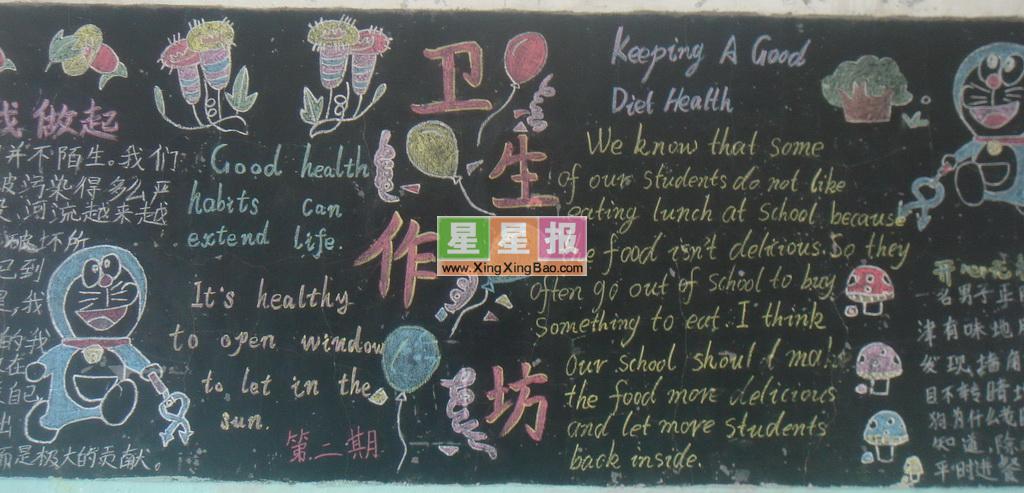 我做起
并不陌生。我们
被污染得多么严
河流越来越
破坏所
己到
我
的我
在
自己
出
而是极大的贡献。
Good health
habits can
extend life.
It's healthy
to open window
to let in the
sun.
第二期
卫
生
作
坊
星星报
www.XingXingBao.com
Keeping A Good
Diet Health
We know that some
of our students do not like
eating lunch at school because
food isn't delicious. So they
often go out of school to buy
something to eat. I think
our school should make
the food more delicious
and let more students
back inside.
一名男子
津有味地
发现，墙角
目不转睛
狗为什么
知道，除
平时进餐